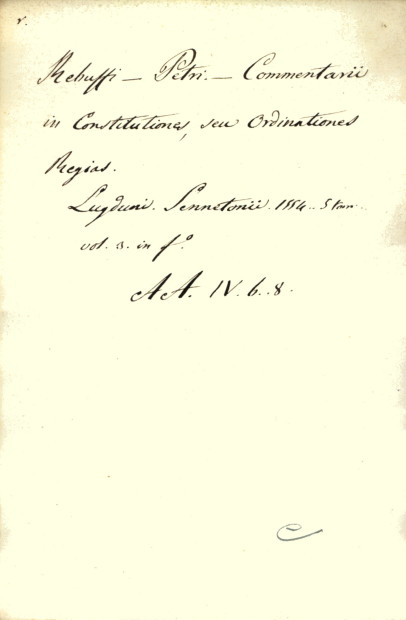 r.
Rebuffi – Petri. – Commentarii
in Constitutiones, seu Ordinationes
Regias.
Lugduni. Sennetonii. 1554. 5 tom.
vol. 3. in fº.
AA. IV. 6. 8.